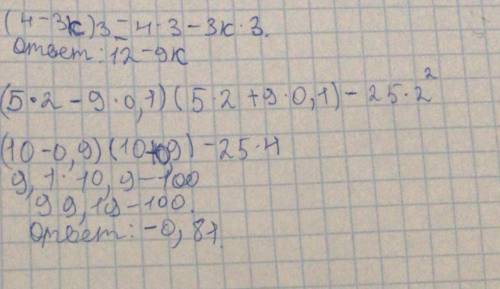 (4-3к)3=4·3-3к·3.
Ответ: 12-9к
(5·2-9·0,1)(5·2+9·0,1)-25·2²
(10-0,9)(10+0,9)-25·4
9,1·10,9-100
99,19-100.
Ответ: -0,81.